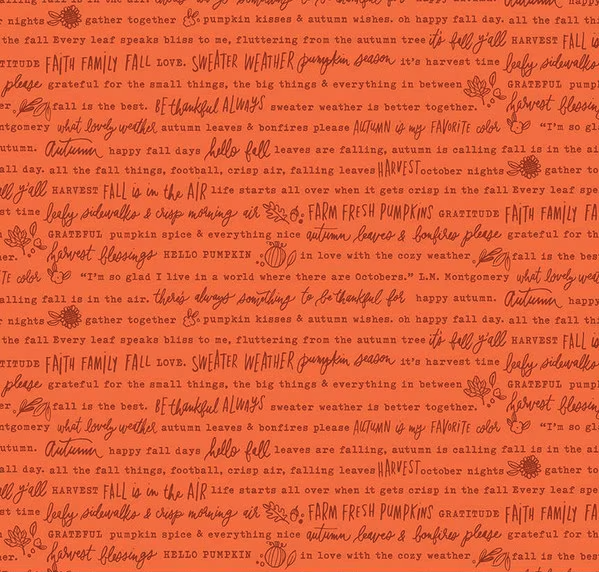 r nights gather together pumpkin kisses & autumn wishes. oh happy fall day. all the fall thi
the fall Every leaf speaks bliss to me, fluttering from the autumn tree it's fall y'all HARVEST FALL is
TITUDE FAITH FAMILY FALL LOVE. SWEATER WEATHER pumpkin season it's harvest time leafy sidewalks
please grateful for the small things, the big things & everything in between GRATEFUL pumpk
er. fall is the best. BE thankful ALWAYS sweater weather is better together. harvest blessing
ntgomery what lovely weather autumn leaves & bonfires please AUTUMN is my FAVORITE color “I'm so gla
utumn. Autumn happy fall days hello fall leaves are falling, autumn is calling fall is in the air.
all day. all the fall things, football, crisp air, falling leaves HARVEST october nights gather to
all y'all HARVEST FALL is in the AIR life starts all over when it gets crisp in the fall Every leaf spea
st time leafy sidewalks & crisp morning air FARM FRESH PUMPKINS GRATITUDE FAITH FAMILY FA
GRATEFUL pumpkin spice & everything nice autumn leaves & bonfires please grateful for the sm
harvest blessings HELLO PUMPKIN in love with the cozy weather fall is the best.
ITE color “I'm so glad I live in a world where there are Octobers.” L.M. Montgomery what lovely w
alling fall is in the air. there's always something to be thankful for happy autumn. Autumn happy fa
r nights gather together pumpkin kisses & autumn wishes. oh happy fall day. all the fall thi
the fall Every leaf speaks bliss to me, fluttering from the autumn tree it's fall y'all HARVEST FALL is
TITUDE FAITH FAMILY FALL LOVE. SWEATER WEATHER pumpkin season it's harvest time leafy sidewalks
please grateful for the small things, the big things & everything in between GRATEFUL pumpk
er. fall is the best. BE thankful ALWAYS sweater weather is better together. harvest blessing
ntgomery what lovely weather autumn leaves & bonfires please AUTUMN is my FAVORITE color “I'm so gla
utumn. Autumn happy fall days hello fall leaves are falling, autumn is calling fall is in the air.
all day. all the fall things, football, crisp air, falling leaves HARVEST october nights gather to
all y'all HARVEST FALL is in the AIR life starts all over when it gets crisp in the fall Every leaf spea
st time leafy sidewalks & crisp morning air FARM FRESH PUMPKINS GRATITUDE FAITH FAMILY FA
GRATEFUL pumpkin spice & everything nice autumn leaves & bonfires please grateful for the sm
harvest blessings HELLO PUMPKIN in love with the cozy weather fall is the best.